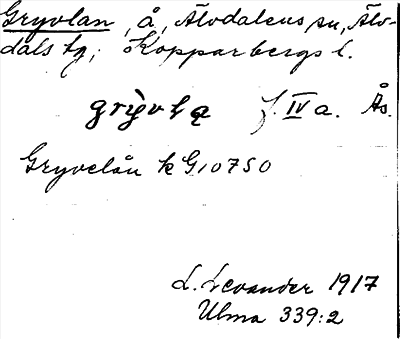 Gryvlan, å, Älvdalens sn, Älv-
dals tg, Kopparbergs l.
grỳvḷą f. IV a. Ås.
Gryvelån k G10750
L. Levander 1917
Ulma 339:2